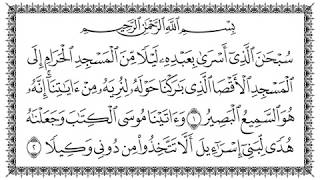 بِسْمِ اللَّهِ الرَّحْمَٰنِ الرَّحِيمِ
سُبْحَٰنَ الَّذِىٓ أَسْرَىٰ بِعَبْدِهِۦ لَيْلًا مِّنَ الْمَسْجِدِ الْحَرَامِ إِلَى
الْمَسْجِدِ الْأَقْصَا الَّذِى بَٰرَكْنَا حَوْلَهُۥ لِنُرِيَهُۥ مِنْ ءَايَٰتِنَآ ۚ إِنَّهُۥ
هُوَ السَّمِيعُ الْبَصِيرُ ١ وَءَاتَيْنَا مُوسَى الْكِتَٰبَ وَجَعَلْنَٰهُ
هُدًى لِّبَنِىٓ إِسْرَٰٓءِيلَ أَلَّا تَتَّخِذُوا۟ مِن دُونِى وَكِيلًا ٢